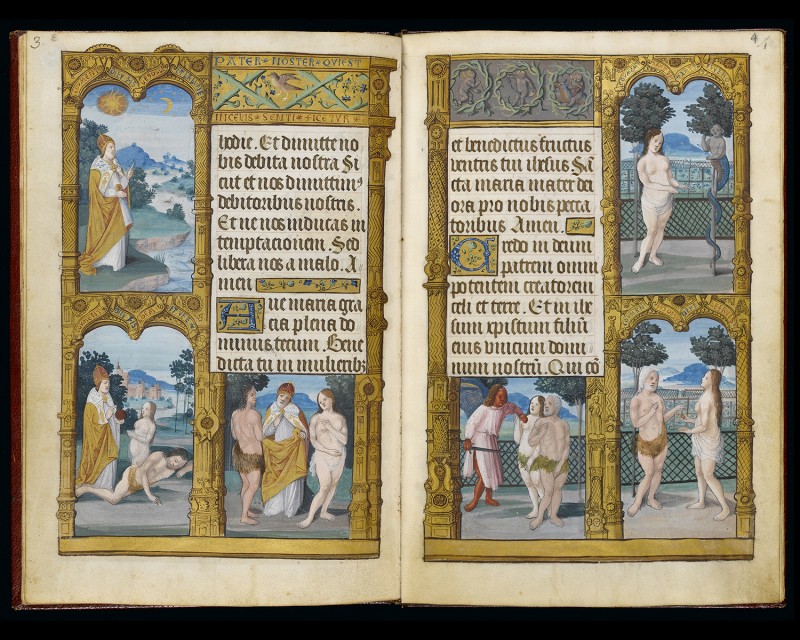 3
PATER NOSTER QVI EST
IN CELIS SENTIFICETVR
hodie. Et dimitte no
bis debita nostra Si
cut et nos dimittim⁹
debitoribus nostris.
Et ne nos inducas in
temptacionem. Sed
libera nos a malo. A
men
Aue maria gra
cia plena do
minus tecum. Bene
dicta tu in mulierib⁹
4
et benedictus fructus
ventris tui ihesus Sā
cta maria mater dei
ora pro nobis pecca
toribus Amen.
Credo in deum
patrem omni
potentem creatorem
celi et terre. Et in ihe
sum xpistum filiū
eius vnicum domi
num nostrū. Qui cō